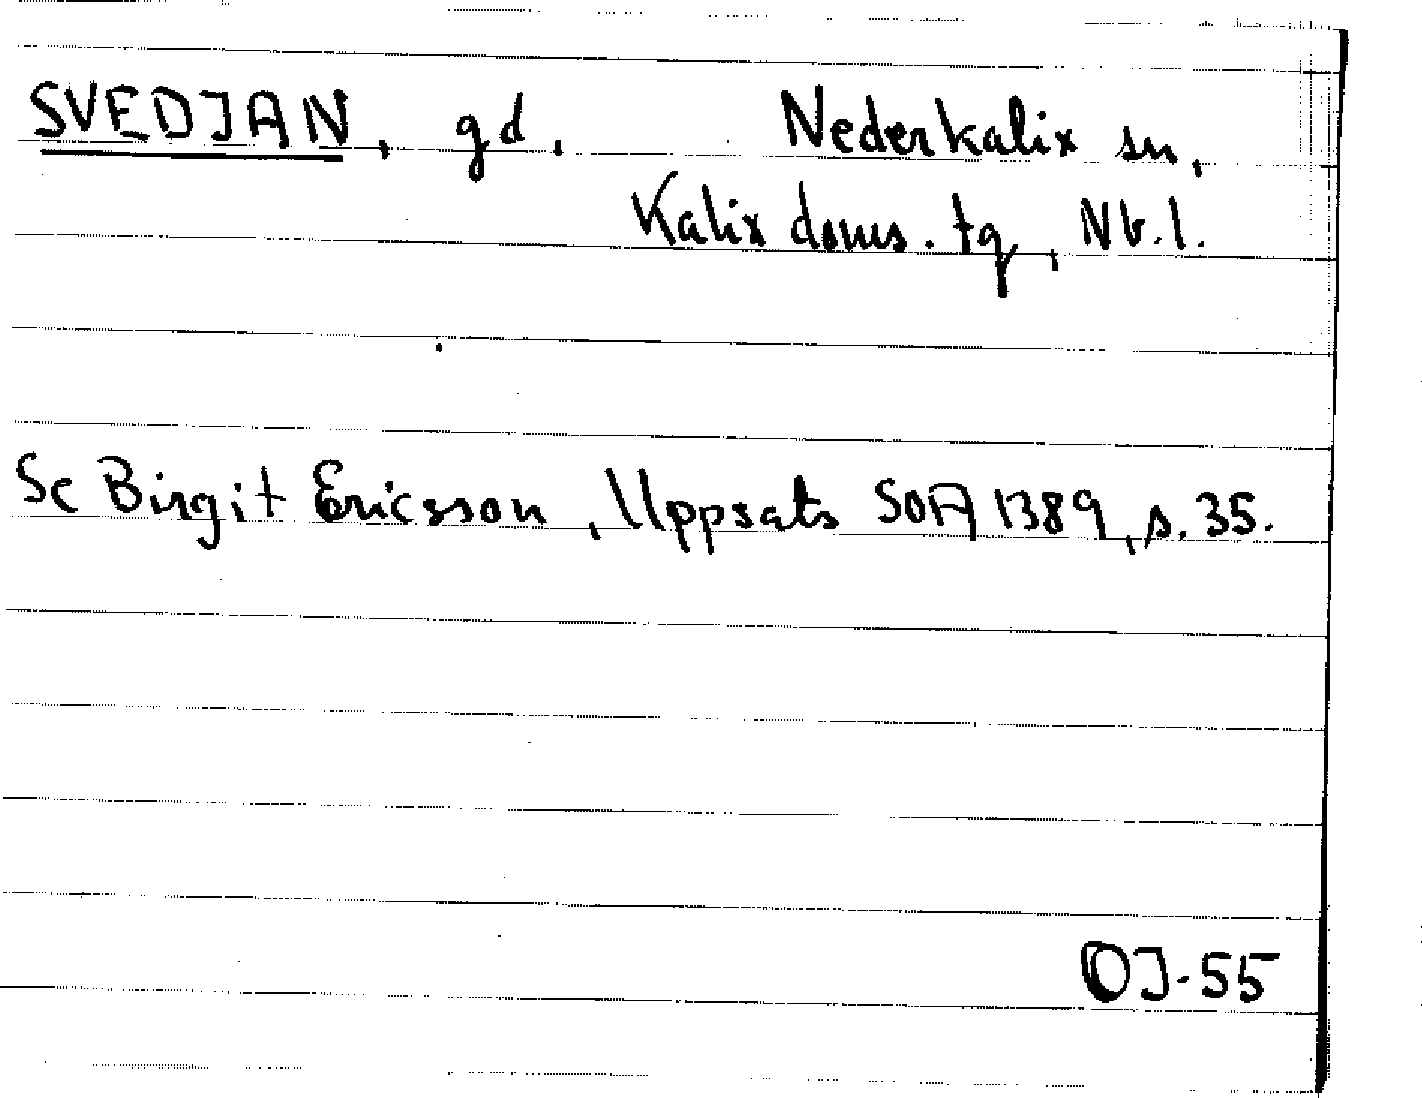 SVEDJAN, gd. Nederkalix sn,
Kalix doms. tg, Nb.l.
Se Birgit Ericsson, Uppsats SOA 1389, s. 35.
OJ-55